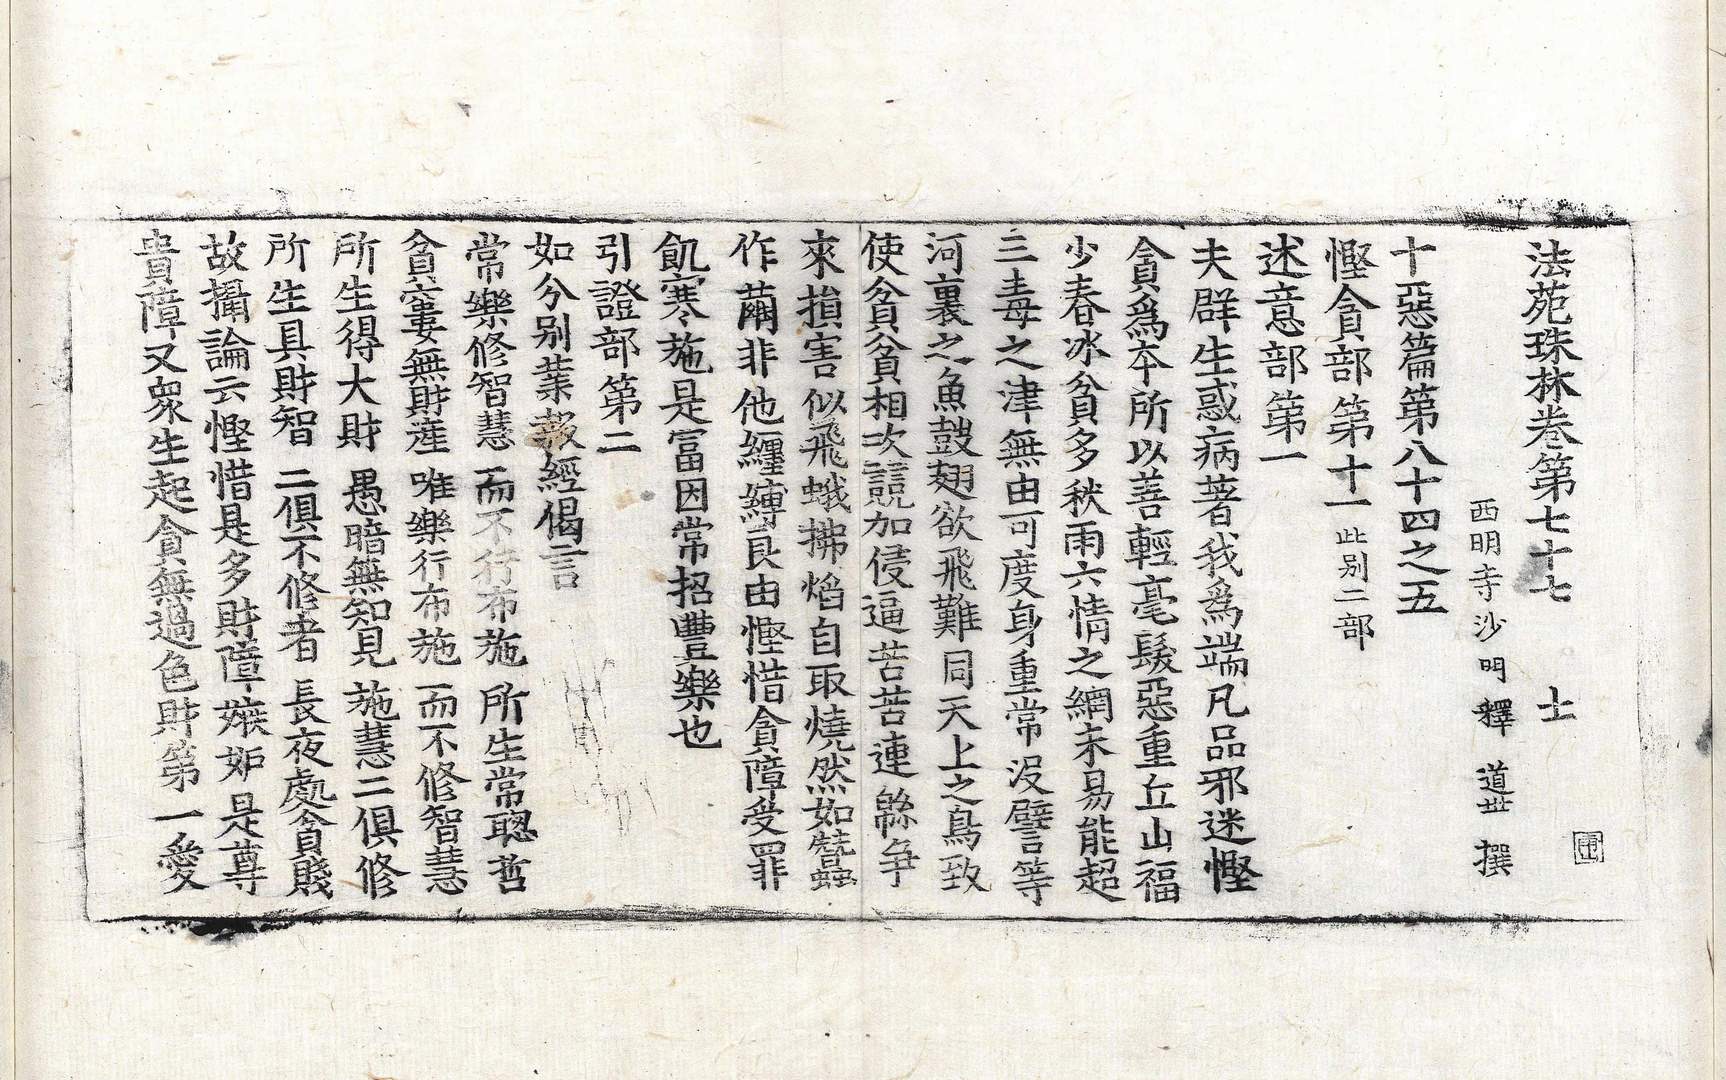 法苑珠林卷第七十七　士
西明寺沙門釋道世撰
十惡篇第八十四之五
慳貪部第十一此別二部
述意部第一
夫群生惑病著我爲端凡品邪迷慳
貪爲本所以善輕毫髮惡重丘山福
少春冰貧多秋雨六情之網未易能超
三毒之津無由可度身重常沒譬等
河裏之魚鼓翅欲飛難同天上之鳥致
使貧貧相次競加侵逼苦苦連緜爭
來損害似飛蛾拂焰自取燒然如蠶
作繭非他纏縛良由慳惜貪障受罪
飢寒施是富因常招豐樂也
引證部第二
如分别業報經偈言
常樂修智慧　而不行布施　所生常聰哲
貧窶無財産　唯樂行布施　而不修智慧
所生得大財　愚暗無知見　施慧二俱修
所生具財智　二俱不修者　長夜處貪賤
故攝論云慳惜是多財障嫉妬是尊
貴障又衆生起貪無過色財第一愛